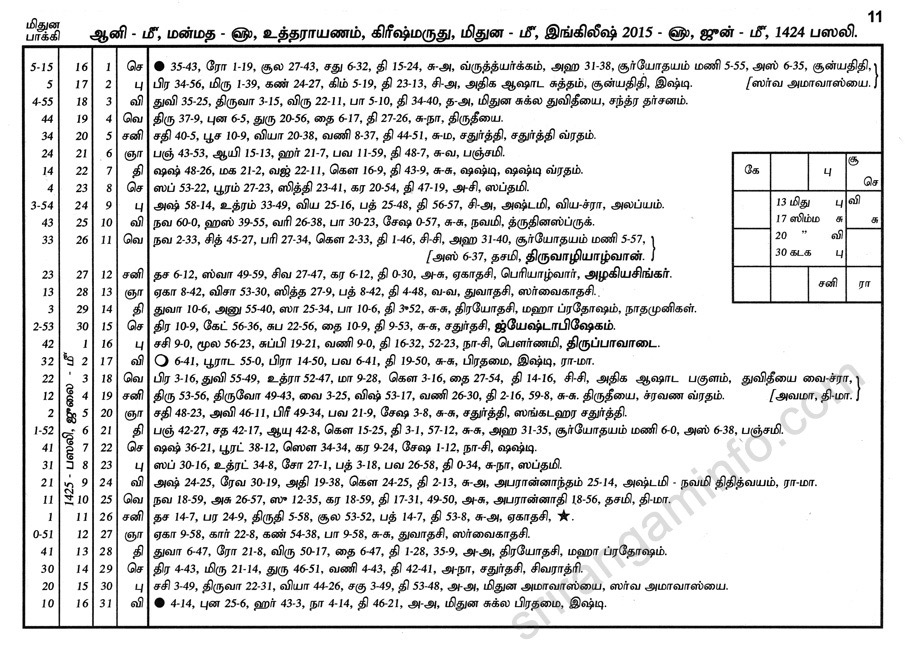 11
மிதுன
பாக்கி
ஆனி - மீ, மன்மத - ௵, உத்தராயணம், கிரீஷ்மருது, மிதுன - மீ, இங்கிலீஷ் 2015 - ௵, ஜுன் - மீ, 1424 பஸலி.
5-15 16 1 செ ● 35-43, ரோ 1-19, சூல 27-43, சது 6-32, தி 15-24, சு-அ, வ்ருத்யர்க்கம், அஹ 31-38, சூர்யோதயம் மணி 5-55, அஸ் 6-35, சூன்யதிதி,
5 17 2 பு பிர 34-56, மிரு 1-39, கண் 24-27, கிம் 5-19, தி 23-13, சி-அ, அதிக ஆஷாட சுத்தம், சூன்யதிதி, இஷ்டி. [ஸர்வ அமாவாஸ்யை.
4-55 18 3 வி துவி 35-25, திருவா 3-15, விரு 22-11, பா 5-10, தி 34-40, த-அ, மிதுன சுக்ல துவிதீயை, சந்த்ர தர்சனம்.
44 19 4 வெ திரு 37-9, புன 6-5, துரு 20-56, தை 6-17, தி 27-26, சு-நா, திருதீயை.
34 20 5 சனி சதி 40-5, பூச 10-9, வியா 20-38, வணி 8-37, தி 44-51, சு-ம, சதுர்த்தி, சதுர்த்தி வ்ரதம்.
24 21 6 ஞா பஞ் 43-53, ஆயி 15-13, ஹர் 21-7, பவ 11-59, தி 48-7, சு-வ, பஞ்சமி.
14 22 7 தி ஷஷ் 48-26, மக 21-2, வஜ் 22-11, கௌ 16-9, தி 43-9, சு-சு, ஷஷ்டி, ஷஷ்டி வ்ரதம்.
4 23 8 செ ஸப் 53-22, பூரம் 27-23, ஸித்தி 23-41, கர 20-54, தி 47-19, அ-சி, ஸப்தமி.
3-54 24 9 பு அஷ் 58-14, உத்ரம் 33-49, விய 25-16, பத் 25-48, தி 56-57, சி-அ, அஷ்டமி, விய-ச்ரா, அலப்யம்.
43 25 10 வி நவ 60-0, ஹஸ் 39-55, வரி 26-38, பா 30-23, சேஷ 0-57, சு-சு, நவமி, த்ருதினஸ்ப்ருக்.
33 26 11 வெ நவ 2-33, சித் 45-27, பரி 27-34, கௌ 2-33, தி 1-46, சி-சி, அஹ 31-40, சூர்யோதயம் மணி 5-57,
[அஸ் 6-37, தசமி, திருவாழியாழ்வான்.
23 27 12 சனி தச 6-12, ஸ்வா 49-59, சிவ 27-47, கர 6-12, தி 0-30, அ-சு, ஏகாதசி, பெரியாழ்வார், அழகியசிங்கர்.
13 28 13 ஞா ஏகா 8-42, விசா 53-30, ஸித்த 27-9, பத் 8-42, தி 4-48, வ-வ, துவாதசி, ஸர்வைகாதசி.
3 29 14 தி துவா 10-6, அனு 55-40, ஸா 25-34, பா 10-6, தி 3ॐ52, சு-சு, திரயோதசி, மஹா ப்ரதோஷம், நாதமுனிகள்.
2-53 30 15 செ திர 10-9, கேட் 56-36, சுப 22-56, தை 10-9, தி 9-53, சு-சு, சதுர்தசி, ஜ்யேஷ்டாபிஷேகம்.
42 1 16 பு சசி 9-0, மூல 56-23, சுப்பி 19-21, வணி 9-0, தி 16-32, 52-23, நா-சி, பௌர்ணமி, திருப்பாவாடை.
32 2 17 வி ○ 6-41, பூராட 55-0, பிரா 14-50, பவ 6-41, தி 19-50, சு-சு, பிரதமை, இஷ்டி, ரா-மா.
22 3 18 வெ பிர 3-16, துவி 55-49, உத்ரா 52-47, மா 9-28, கௌ 3-16, தை 27-54, தி 14-16, சி-சி, அதிக ஆஷாட பகுளம், துவிதீயை வை-ச்ரா,
12 4 19 சனி திரு 53-56, திருவோ 49-43, வை 3-25, விஷ் 53-17, வணி 26-30, தி 2-16, 59-8, சு-சு. திருதீயை, ச்ரவண வ்ரதம். [அவமா, தி-மா.
2 5 20 ஞா சதி 48-23, அவி 46-11, பிரீ 49-34, பவ 21-9, சேஷ 3-8, சு-சு, சதுர்த்தி, ஸங்கடஹர சதுர்த்தி.
1-52 6 21 தி பஞ் 42-27, சத 42-17, ஆயு 42-8, கௌ 15-25, தி 3-1, 57-12, சு-சு, அஹ 31-35, சூர்யோதயம் மணி 6-0, அஸ் 6-38, பஞ்சமி.
41 7 22 செ ஷஷ் 36-21, பூரட் 38-12, ஸௌ 34-34, கர 9-24, சேஷ 1-12, நா-சி, ஷஷ்டி.
31 8 23 பு ஸப் 30-16, உத்ரட் 34-8, சோ 27-1, பத் 3-18, பவ 26-58, தி 0-34, சு-நா, ஸப்தமி.
21 9 24 வி அஷ் 24-25, ரேவ 30-19, அதி 19-38, கௌ 24-25, தி 2-13, சு-அ, அபரான்னாந்தம் 25-14, அஷ்டமி - நவமி திதித்வயம், ரா-மா.
11 10 25 வெ நவ 18-59, அசு 26-57, ஸு 12-35, கர 18-59, தி 17-31, 49-50, அ-சு, அபரான்னாதி 18-56, தசமி, தி-மா.
1 11 26 சனி தச 14-7, பர 24-9, திருதி 5-58, சூல 53-52, பத் 14-7, தி 53-8, சு-அ, ஏகாதசி, ★.
0-51 12 27 ஞா ஏகா 9-58, கார் 22-8, கண் 54-38, பா 9-58, சு-சு, துவாதசி, ஸர்வைகாதசி.
41 13 28 தி துவா 6-47, ரோ 21-8, விரு 50-17, தை 6-47, தி 1-28, 35-9, அ-அ, திரயோதசி, மஹா ப்ரதோஷம்.
30 14 29 செ திர 4-43, மிரு 21-14, துரு 46-51, வணி 4-43, தி 42-41, அ-நா, சதுர்தசி, சிவராத்ரி.
20 15 30 பு சசி 3-49, திருவா 22-31, வியா 44-26, சகு 3-49, தி 53-48, அ-அ, மிதுன அமாவாஸ்யை, ஸர்வ அமாவாஸ்யை.
10 16 31 வி ● 4-14, புன 25-6, ஹர் 43-3, நா 4-14, தி 46-21, அ-அ, மிதுன சுக்ல பிரதமை, இஷ்டி.
1425 - பஸலி, ஜுலை - மீ
கே பு சூ செ
13 மிது பு வி
17 ஸிம்ம சு சு
20 " வி
30 கடக பு
சனி ரா
srirangaminfo.com